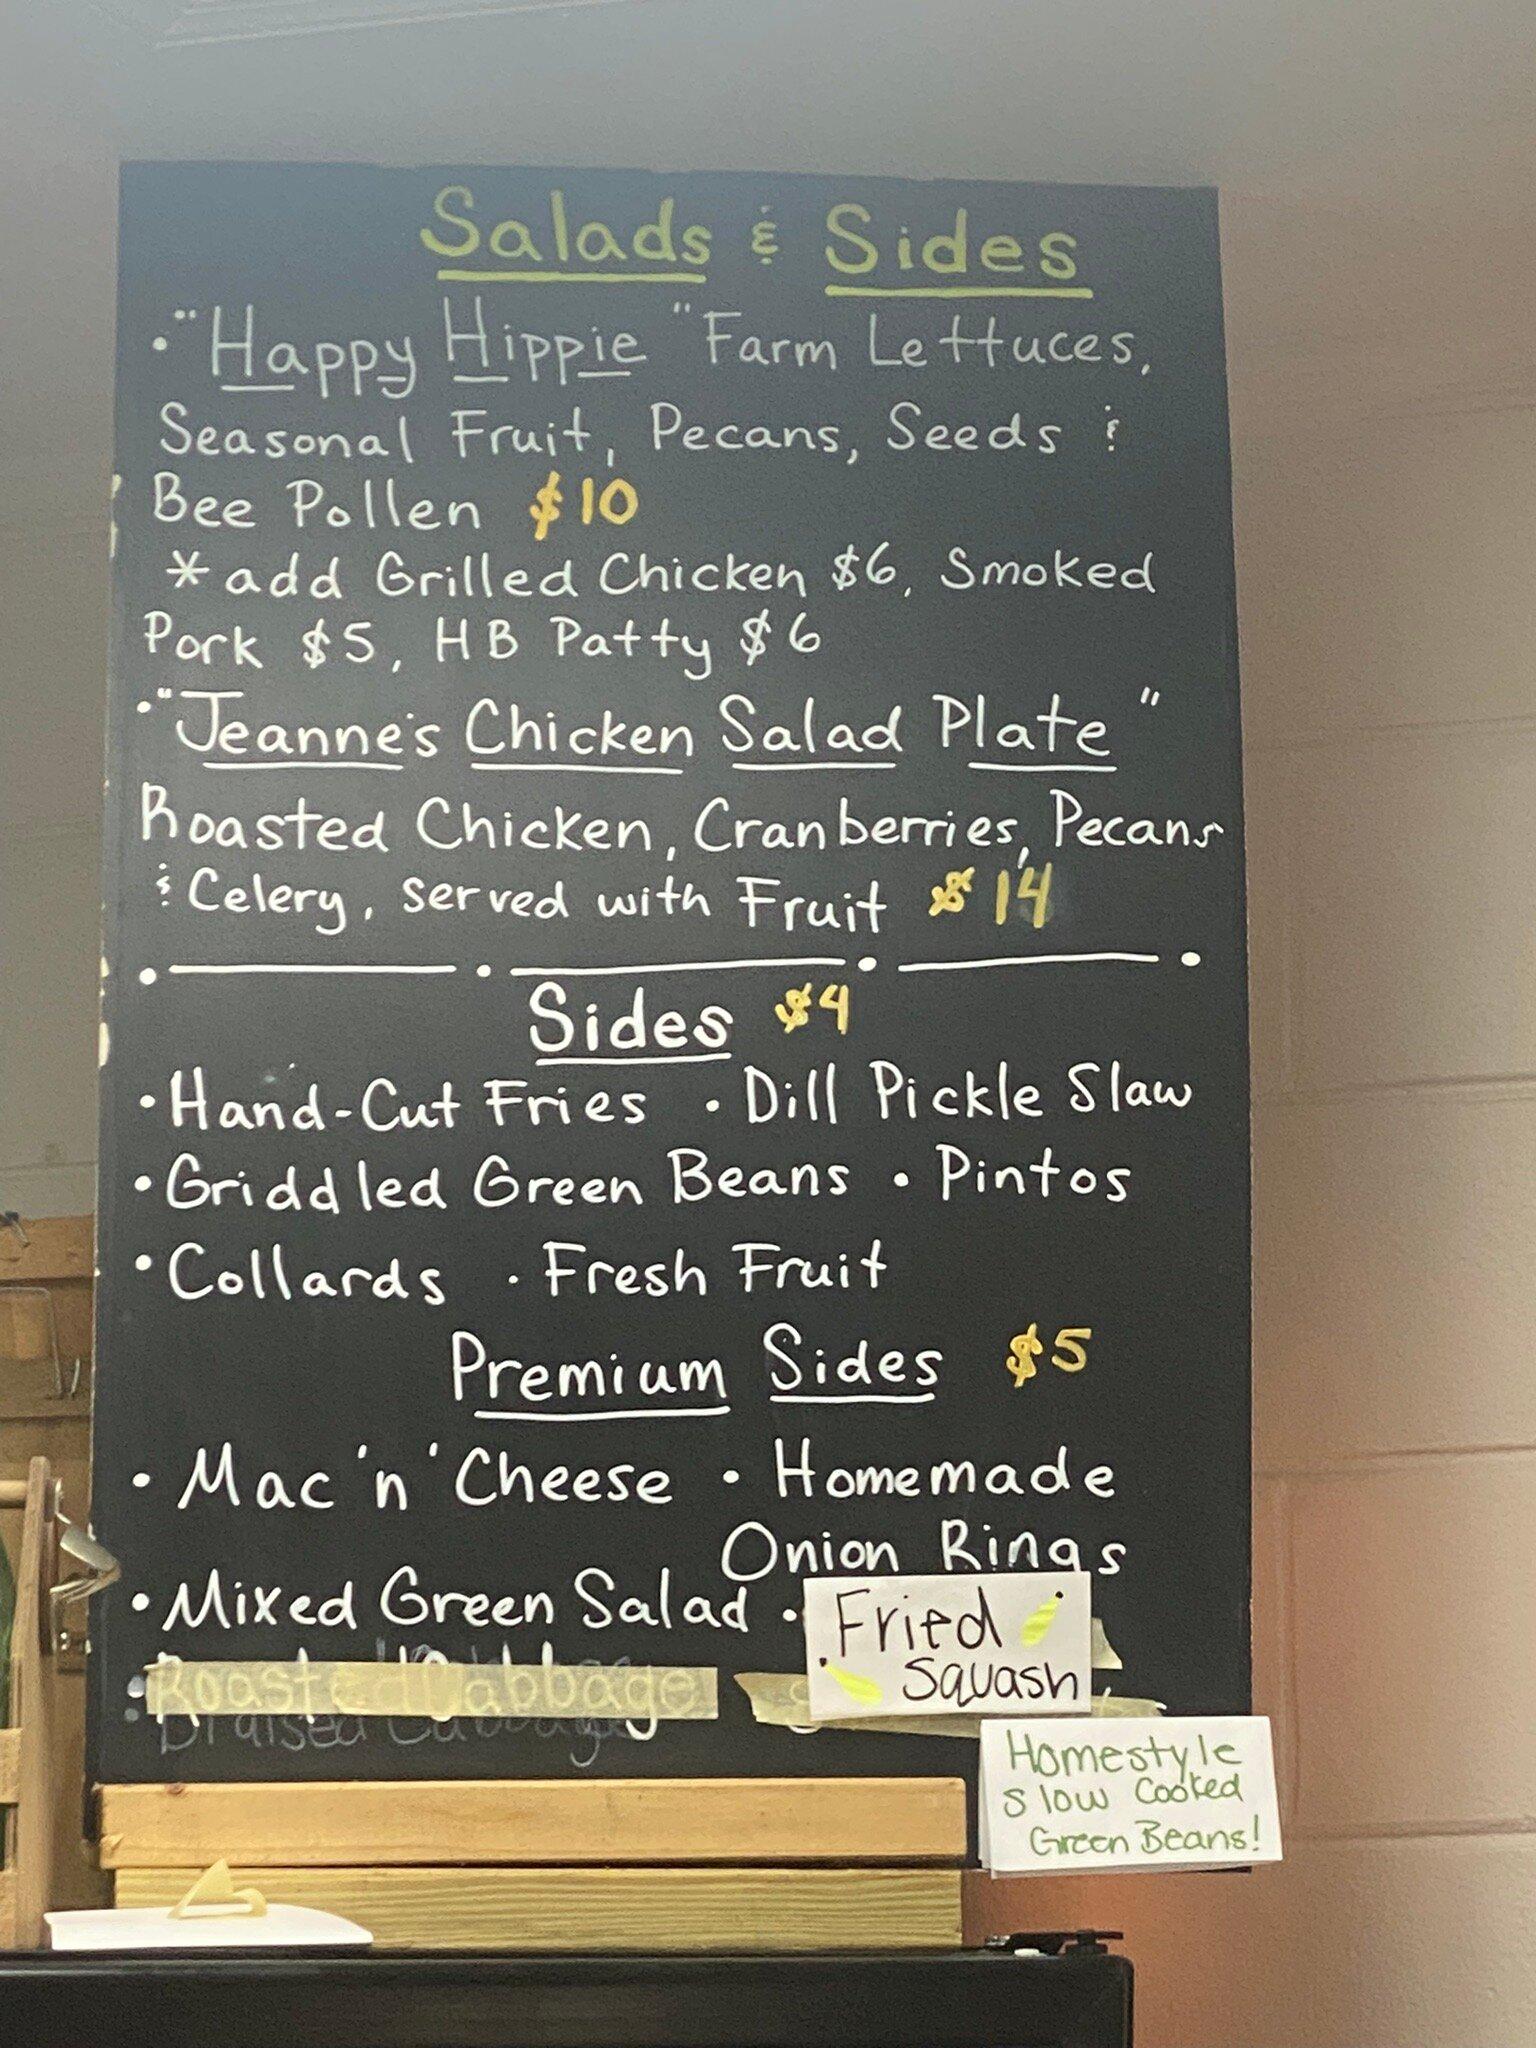 Salads & Sides
• "Happy Hippie" Farm Lettuces,
Seasonal Fruit, Pecans, Seeds &
Bee Pollen $10
*add Grilled Chicken $6, Smoked
Pork $5, HB Patty $6
• "Jeanne's Chicken Salad Plate"
Roasted Chicken, Cranberries, Pecans
& Celery, served with Fruit $14
Sides $4
• Hand-Cut Fries • Dill Pickle Slaw
• Griddled Green Beans • Pintos
• Collards • Fresh Fruit
Premium Sides $5
• Mac 'n' Cheese • Homemade
Onion Rings
• Mixed Green Salad • Fried
Squash
• Roasted Cabbage
Braised Cabbage
Homestyle
Slow Cooked
Green Beans!